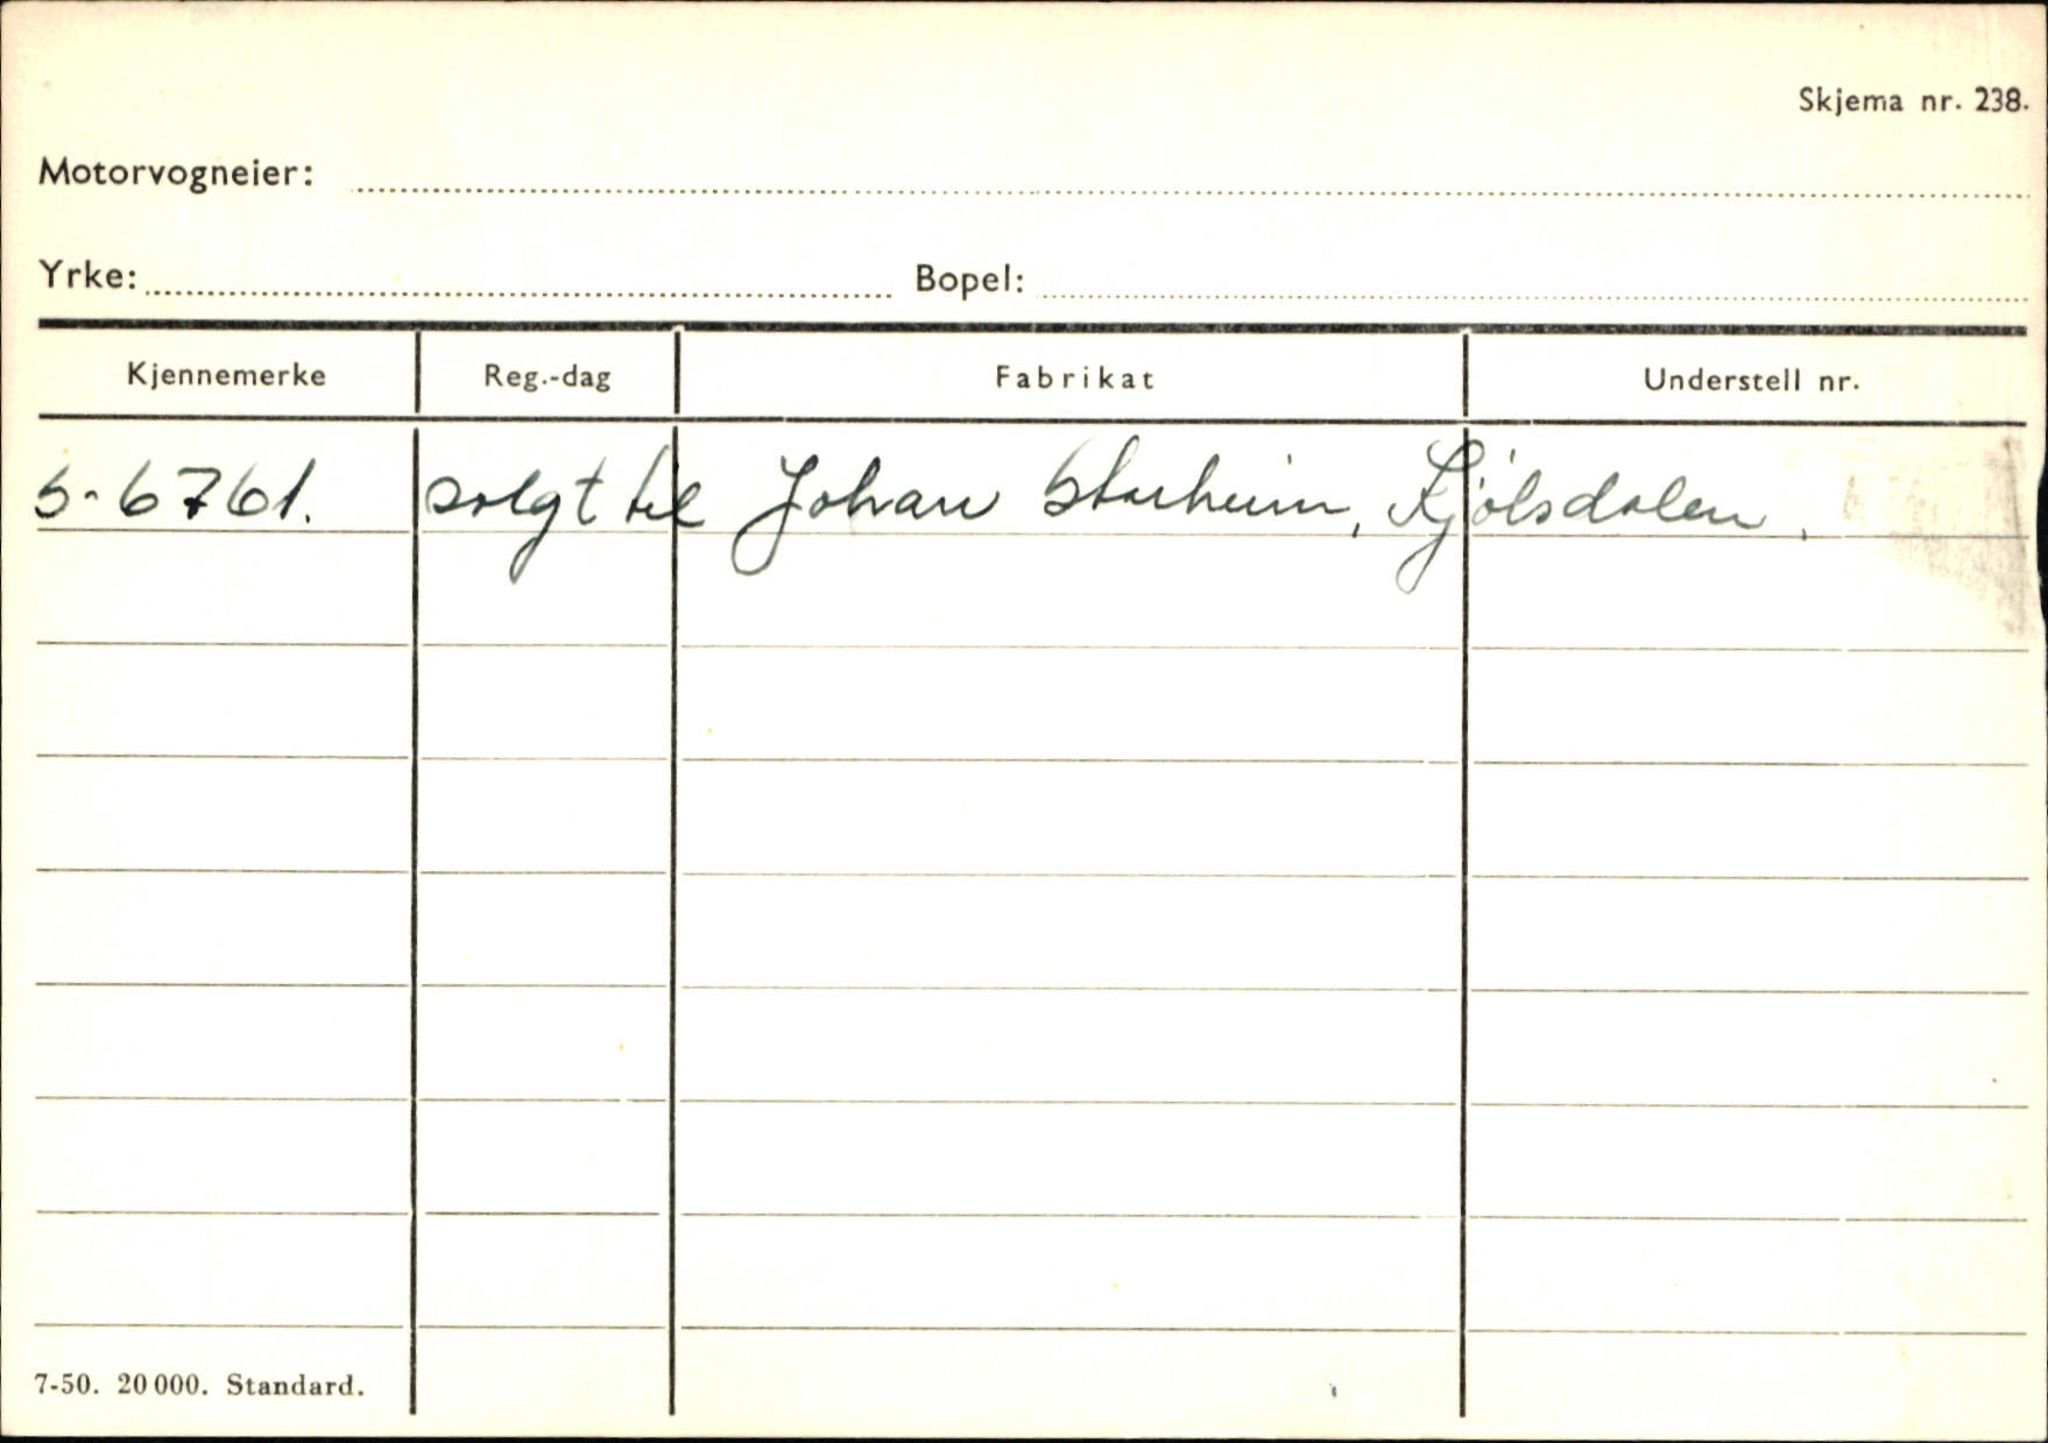 Skjema nr. 238.
Motorvogneier:
Yrke: Bopel:
Kjennemerke Reg.-dag Fabrikat Understell nr.
S-6761. solgt til Johan Starheim, Kjölsdalen.
7-50. 20 000. Standard.